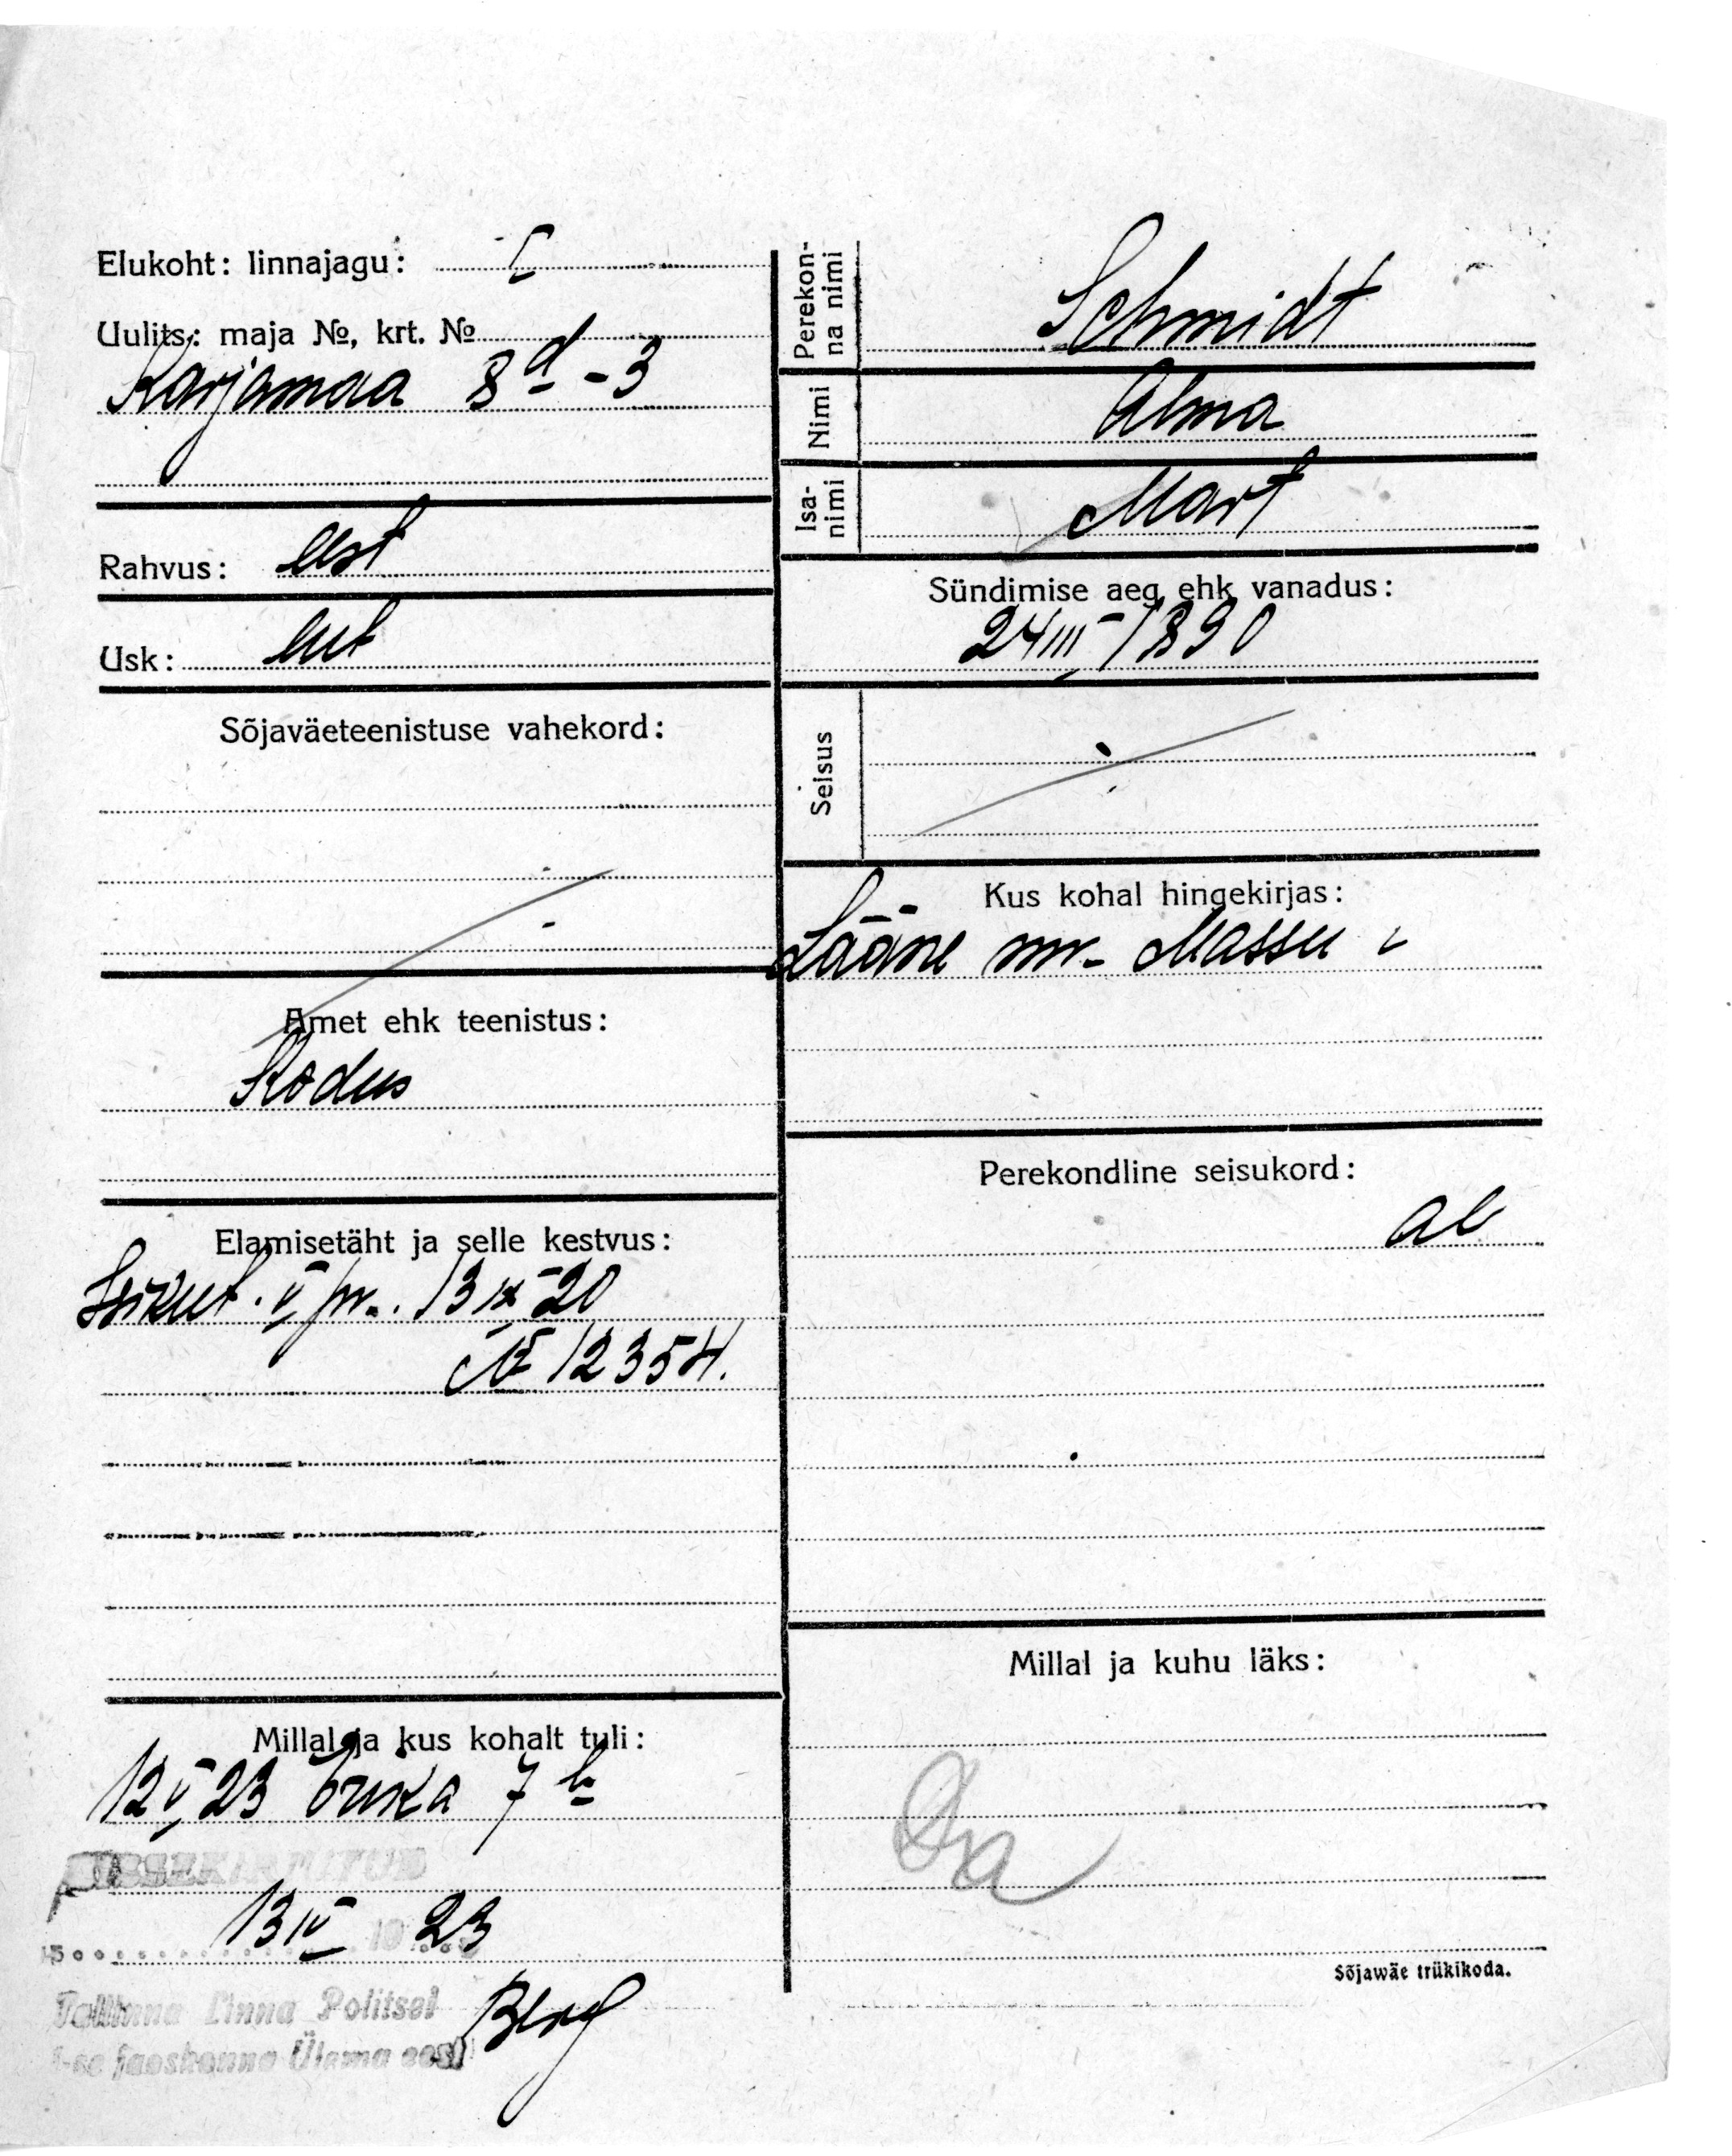 Elukoht: linnajagu: I
Uulits: maja №, krt. №
Karjamaa 8d-3
Rahvus: est
Usk: lut
Sõjaväeteenistuse vahekord:
Amet ehk teenistus:
Kodus
Elamisetäht ja selle kestvus:
Isikut. V pr. 13 IX 20
№ 12354.
Millal ja kus kohalt tuli:
12 V 23
SISSEKIRJUTUD
13 IV 1923
Tallinna Linna Politsei
jaoskonna Ülema eest
Berg
Perekonna nimi
Schmidt
Nimi
Alma
Isanimi
Mart
Sündimise aeg ehk vanadus:
24 III 1890
Seisus
Kus kohal hingekirjas:
Lääne mr. Massu v
Perekondline seisukord:
Millal ja kuhu läks:
Sõjawäe trükikoda.